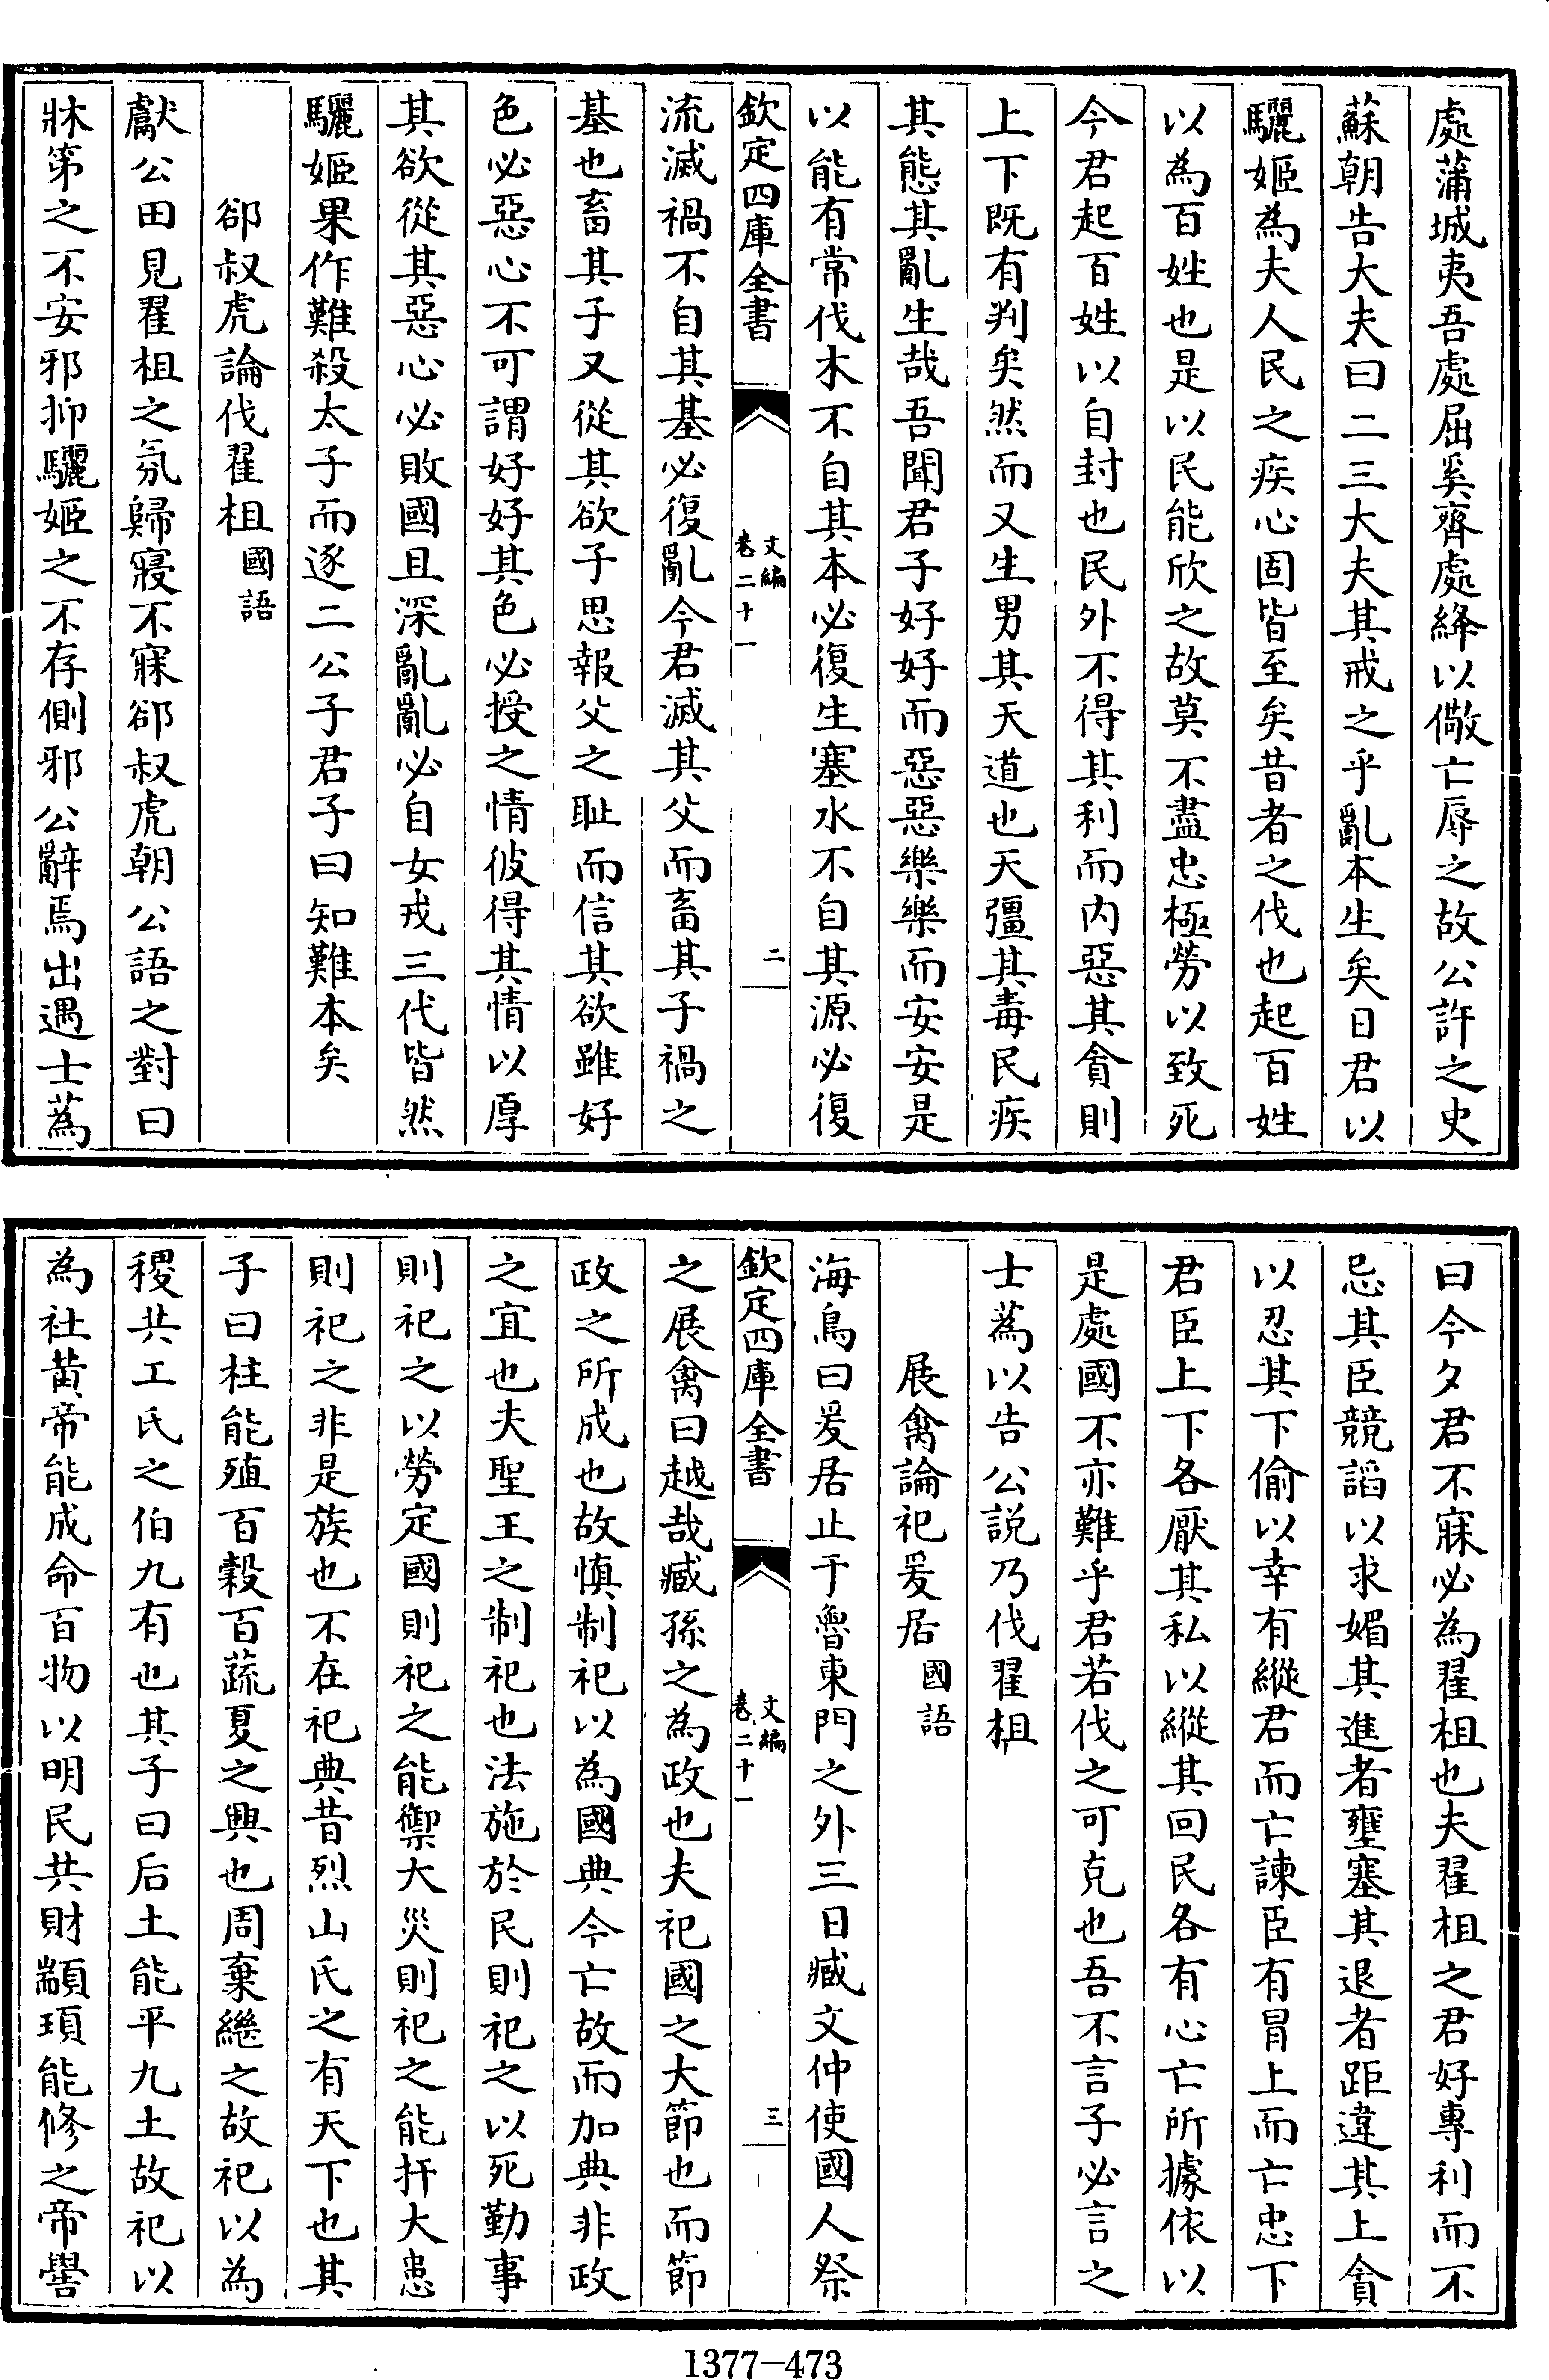 處蒲城夷吾處屈奚齊處絳以儆亡辱之故公許之史
蘇朝告大夫曰二三大夫其戒之乎亂本生矣日君以
驪姬為夫人民之疾心固皆至矣昔者之伐也起百姓
以為百姓也是以民能欣之故莫不盡忠極勞以致死
今君起百姓以自封也民外不得其利而内惡其貪則
上下既有判矣然而又生男其天道也天彊其毒民疾
其態其亂生哉吾聞君子好好而惡惡樂樂而安安是
以能有常伐木不自其本必復生塞水不自其源必復
欽定四庫全書
文編
卷二十一
二
流滅禍不自其基必復亂今君滅其父而畜其子禍之
基也畜其子又從其欲子思報父之耻而信其欲雖好
色必惡心不可謂好好其色必授之情彼得其情以厚
其欲從其惡心必敗國且深亂亂必自女戎三代皆然
驪姬果作難殺太子而逐二公子君子曰知難本矣
郤叔虎論伐翟柤國語
獻公田見翟柤之氛歸寢不寐郤叔虎朝公語之對曰
牀第之不安邪抑驪姬之不存側邪公辭焉出遇士蒍
曰今夕君不寐必為翟柤也夫翟柤之君好專利而不
忌其臣競諂以求媚其進者壅塞其退者距違其上貪
以忍其下偷以幸有縱君而亡諫臣有冒上而亡忠下
君臣上下各厭其私以縱其回民各有心亡所據依以
是處國不亦難乎君若伐之可克也吾不言子必言之
士蒍以告公説乃伐翟柤
展禽論祀爰居國語
海鳥曰爰居止于魯東門之外三日臧文仲使國人祭
欽定四庫全書
文編
卷二十一
三
之展禽曰越哉臧孫之為政也夫祀國之大節也而節
政之所成也故慎制祀以為國典今亡故而加典非政
之宜也夫聖王之制祀也法施於民則祀之以死勤事
則祀之以勞定國則祀之能禦大災則祀之能扞大患
則祀之非是族也不在祀典昔烈山氏之有天下也其
子曰柱能殖百穀百蔬夏之興也周棄繼之故祀以為
稷共工氏之伯九有也其子曰后土能平九土故祀以
為社黄帝能成命百物以明民共財顓頊能修之帝嚳
1377-473